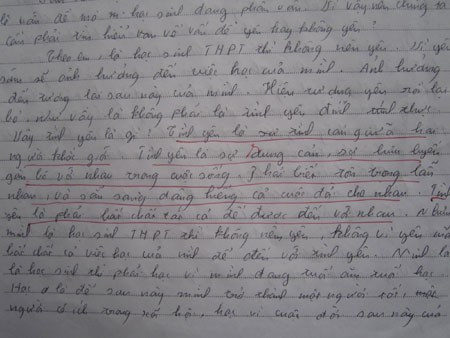 là vấn đề mà mỗi học sinh đang phân vân. Vì vậy nên chúng ta
cần phải tìm hiểu xem về vấn đề yêu hay không yêu?
Theo em, là học sinh THPT thì không nên yêu. Vì yêu
sớm sẽ ảnh hưởng đến việc học của mình. Ảnh hưởng
đến tương lai sau này của mình. Hiện tượng yêu rồi lại
bỏ, như vậy là không phải là tình yêu đích thực
Vậy tình yêu là gì? Tình yêu là sự tình cảm giữa hai
người khác giới. Tình yêu là sự dung cảm, sự lưu luyến
gắn bó với nhau trong cuộc sống. Phải biết tôn trọng lẫn
nhau, và sẵn sàng dâng hiến cả cuộc đời cho nhau. Tình
yêu là phải bất chấp tất cả để được đến với nhau. Nhưng
mình là học sinh THPT thì không nên yêu, không vì yêu mà
bất chấp cả việc học của mình để đến với tình yêu. Mình là
là học sinh thì phải học vì mình đang tuổi ăn tuổi học.
Học là để sau này mình trở thành một người tốt, một
người có ích trong xã hội, học vì cuộc đời sau này của